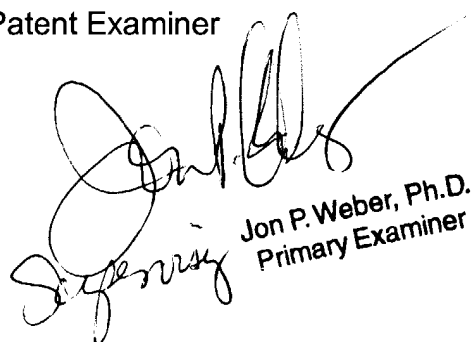 Patent Examiner
Jon P. Weber
Jon P. Weber, Ph.D.
Supervisory Primary Examiner